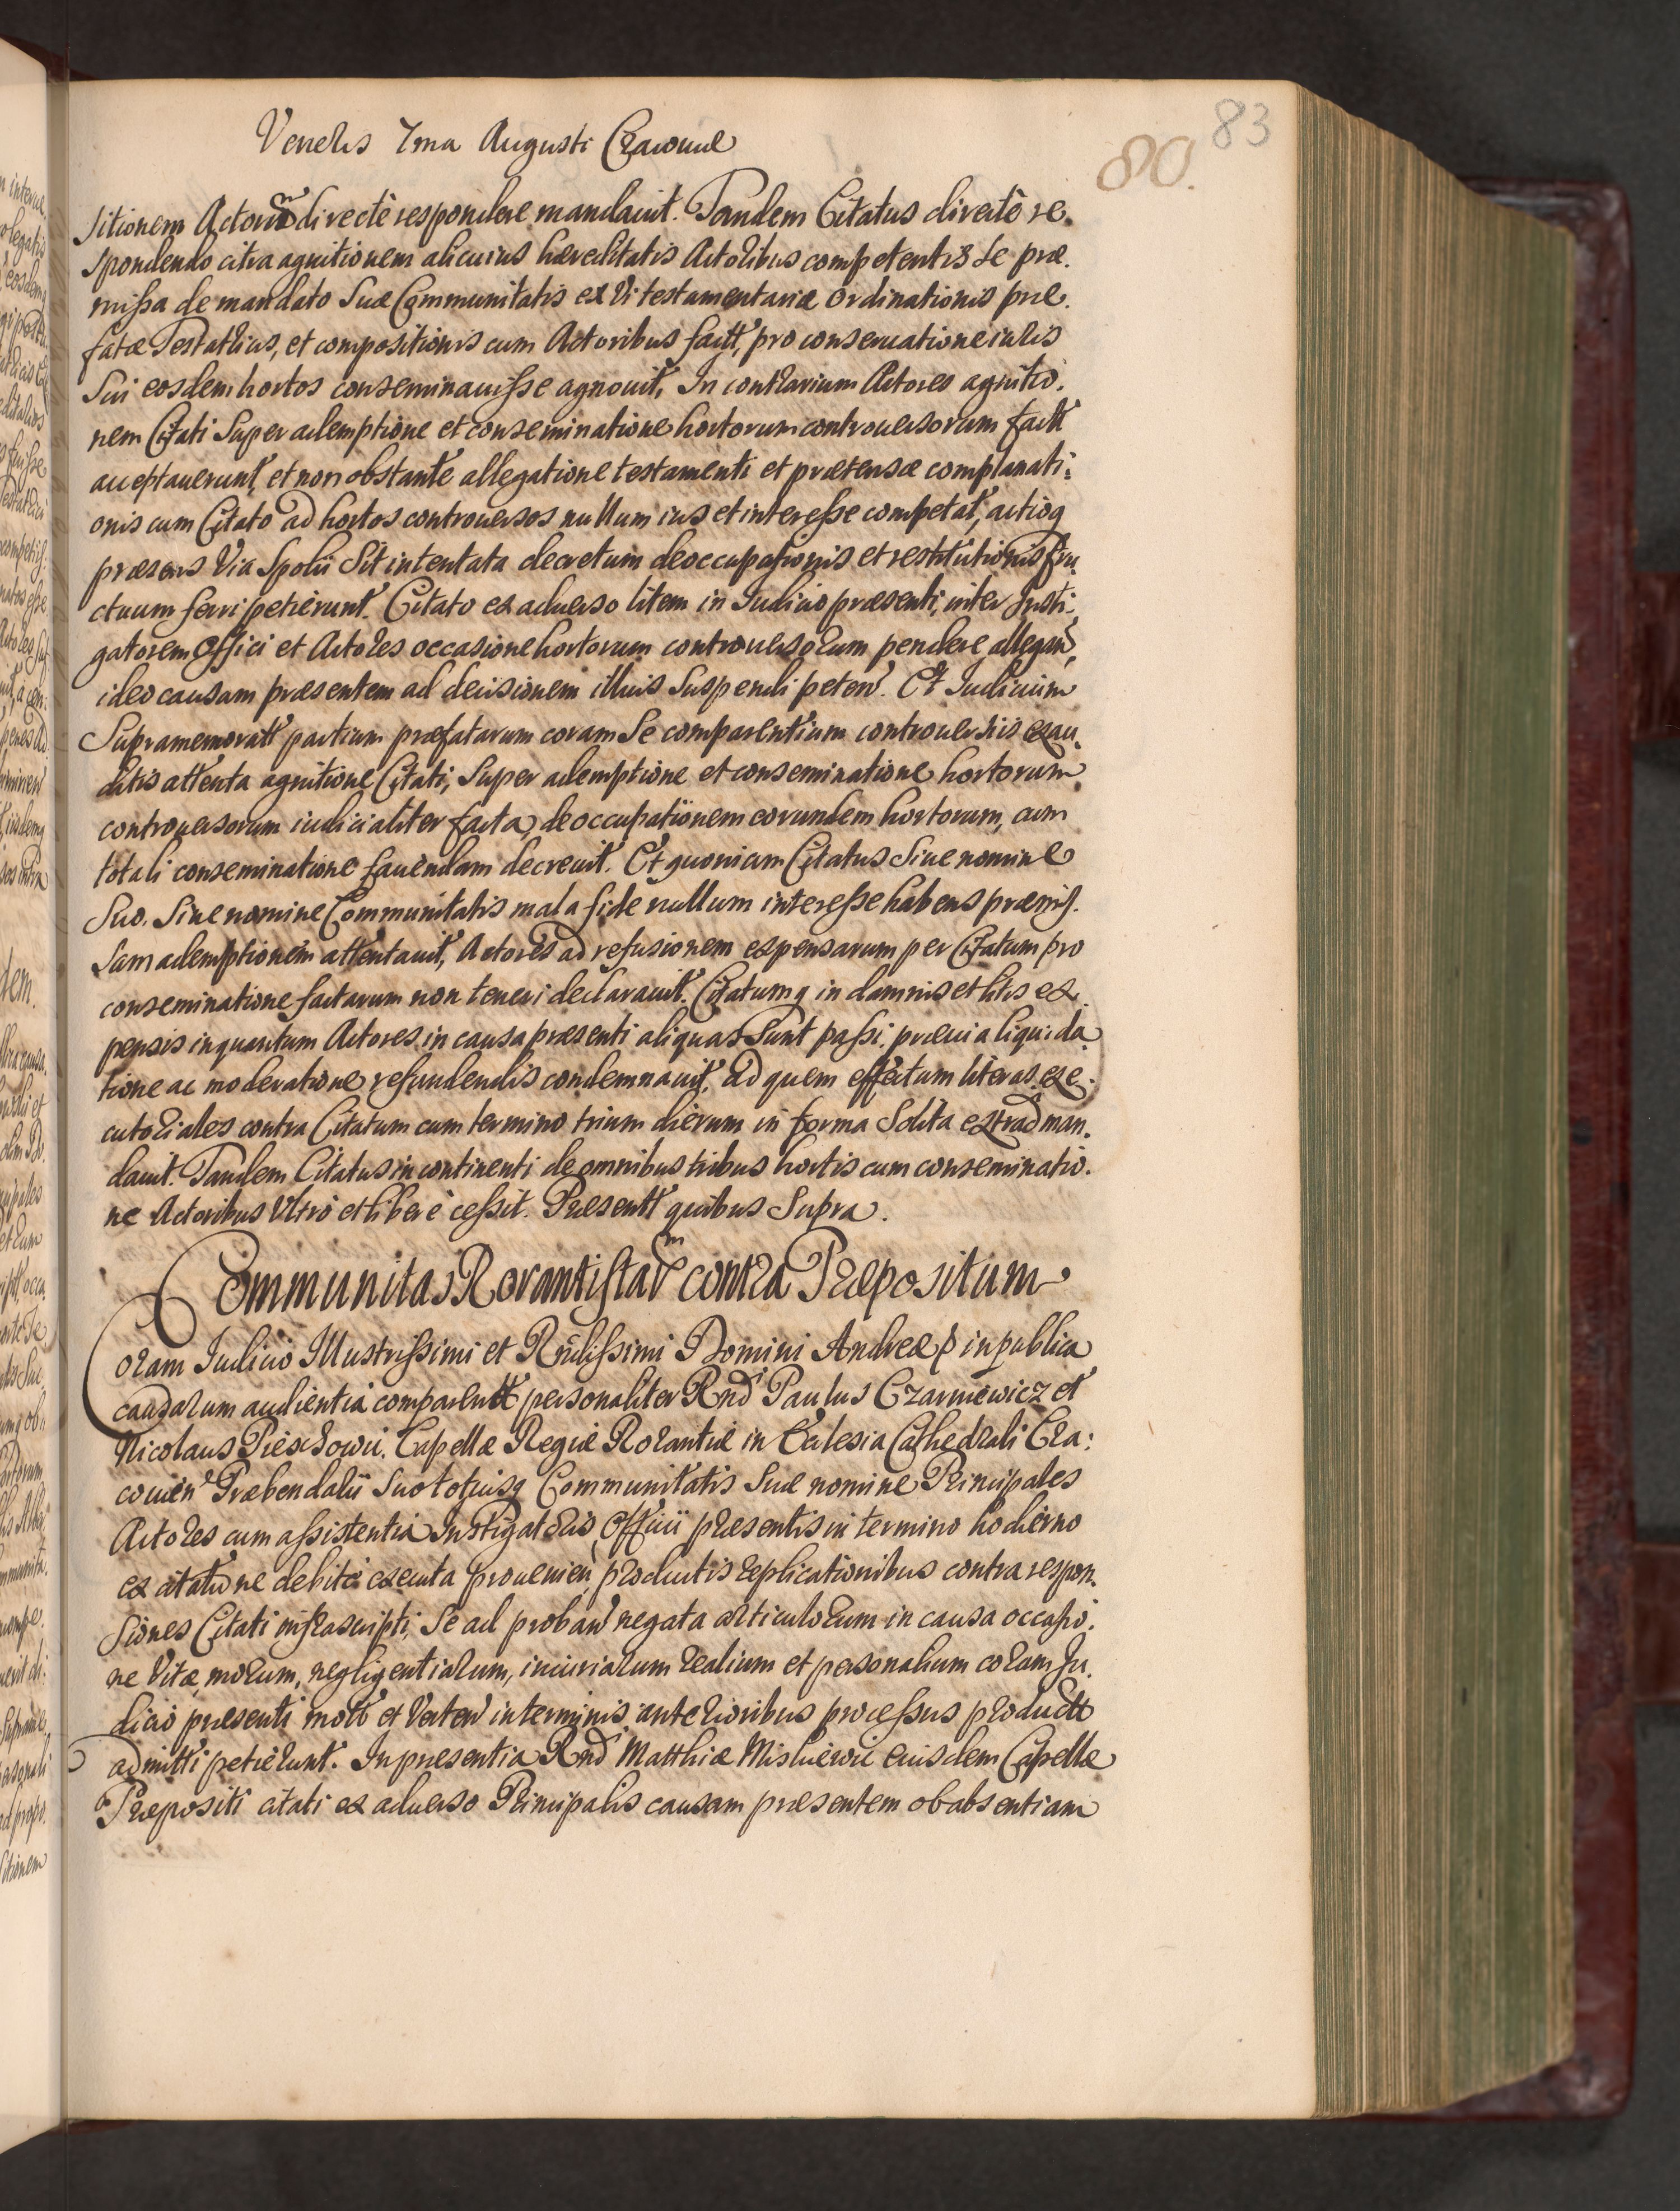 Veneris 7ma Augusti Cracouiæ
80. 83
sitionem Actorũ directè respondere mandauit. Tandem Citatus directè re-
spondendo citra agnitionem alicuius hæreditatis Actoribus competentis se præ-
missa de mandato Suæ Communitatis ex Vi testamentariæ ordinationis præ-
fatæ Testatricis, et compositionis cum Actoribus factt, pro conseruatione iuris
Sui eosdem hortos conseminauisse agnouit. In contrarium Actores agnitio-
nem Citati Super ademptione et conseminatione hortorum controuersorum factt
acceptauerunt, et non obstante allegatione testamenti et prætensæ complanati-
onis cum Citato ad hortos controuersos nullum ius et interesse competat, actioq
præsens Via Spolii Sit intentata decretum deoccupationis et restitutionis fru-
ctuum ferri petierunt. Citato ex aduerso litem in Iudicio præsenti, inter Insti-
gatorem Officii et Actores occasione hortorum controuersorum pendere allegan,
ideo causam præsentem ad decisionem illius Suspendi peten. Et Iudicium
Supramemoratt partium præfatarum coram Se comparentium controuersiis exau-
ditis attenta agnitione Citati, Super ademptione et conseminatione hortorum
controuersorum iudicialiter facta, deoccupationem eorundem hortorum, cum
totali conseminatione fauendam decreuit. Et quoniam Citatus Siue nomine
Suo. Siue nomine Communitatis mala fide nullum interesse habens præmis-
sam ademptionem attentauit, Actores ad refusionem expensarum per Citatum pro
conseminatione factarum non teneri declarauit. Citatumq in damnis et litis ex-
pensis inquantum Actores in causa præsenti aliquas Sunt passi, præuia liquida-
tione ac moderatione refundendis condemnauit, ad quem effectum literas exe-
cutoriales contra Citatum cum termino trium dierum in forma Solita extrad man-
dauit. Tandem Citatus incontinenti de omnibus tribus hortis cum conseminatio-
ne Actoribus Vltrò et liberè cessit. Præsentt quibus Supra.
Communitas Rorantistarm contra Præpositum
Coram Iudicio Illustrissimi et Rndissimi Domini Andreæ p in publica
causarum audientia comparentt personaliter Rnd Paulus Czarniewicz et
Nicolaus Pieskowic. Capellæ Regiæ Rorantiæ in Ecclesia Cathedrali Cra-
couien Præbendarii Suo totiusq Communitatis Suæ nomine Principales
Actores cum assistentia Instigatoris Officii præsentis in termino hodierno
ex citatione debitè executa prouenien, productis replicationibus contra respon-
siones Citati infrascripti, Se ad proban negata articulorum in causa occasio-
ne Vitæ, morum, negligentiarum, iniuriarum realium et personalium coram Iu-
dicio præsenti mott et Verten in terminis anterioribus processus productt
admitti petierunt. In præsentia Rnd Matthiæ Misluewic eiusdem Capellæ
Præpositi citati ex aduerso Principalis causam præsentem ob absentiam